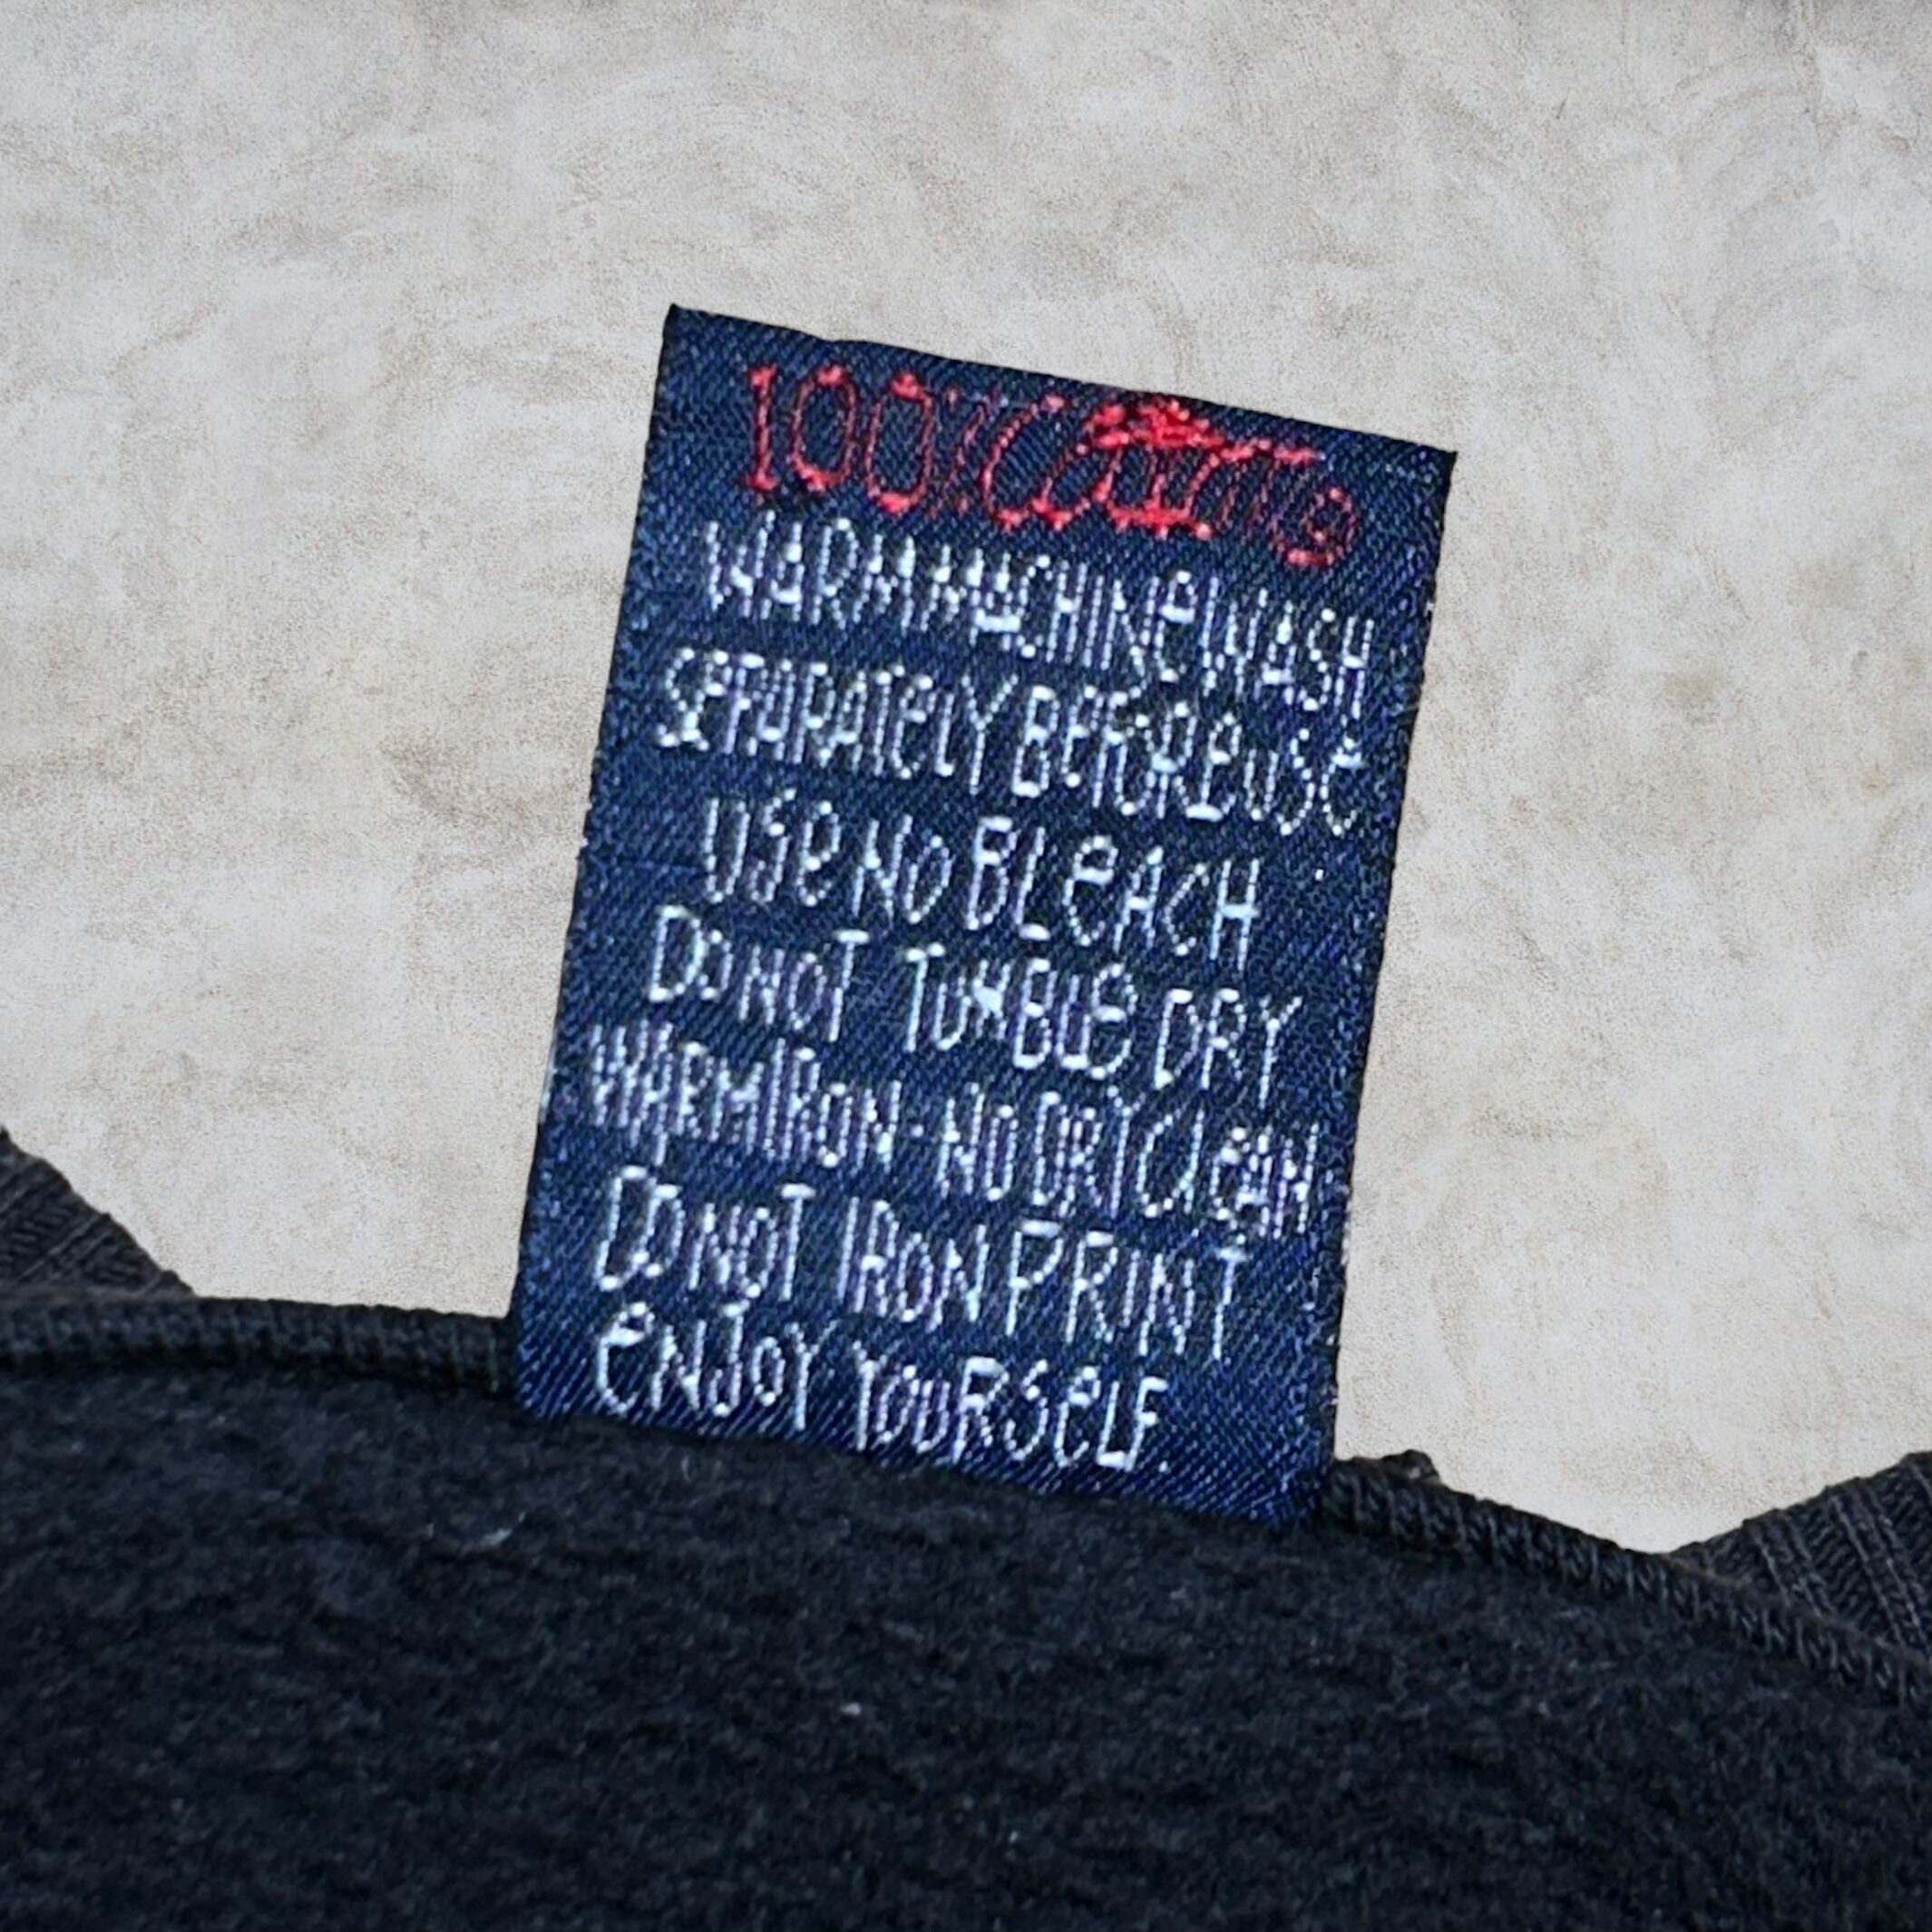 100%
WARM MACHINE WASH
SEPARATELY BEFORE USE
USE NO BLEACH
DO NOT TUMBLE DRY
WARM IRON - NO DRY CLEAN
DO NOT IRON PRINT
ENJOY YOURSELF.